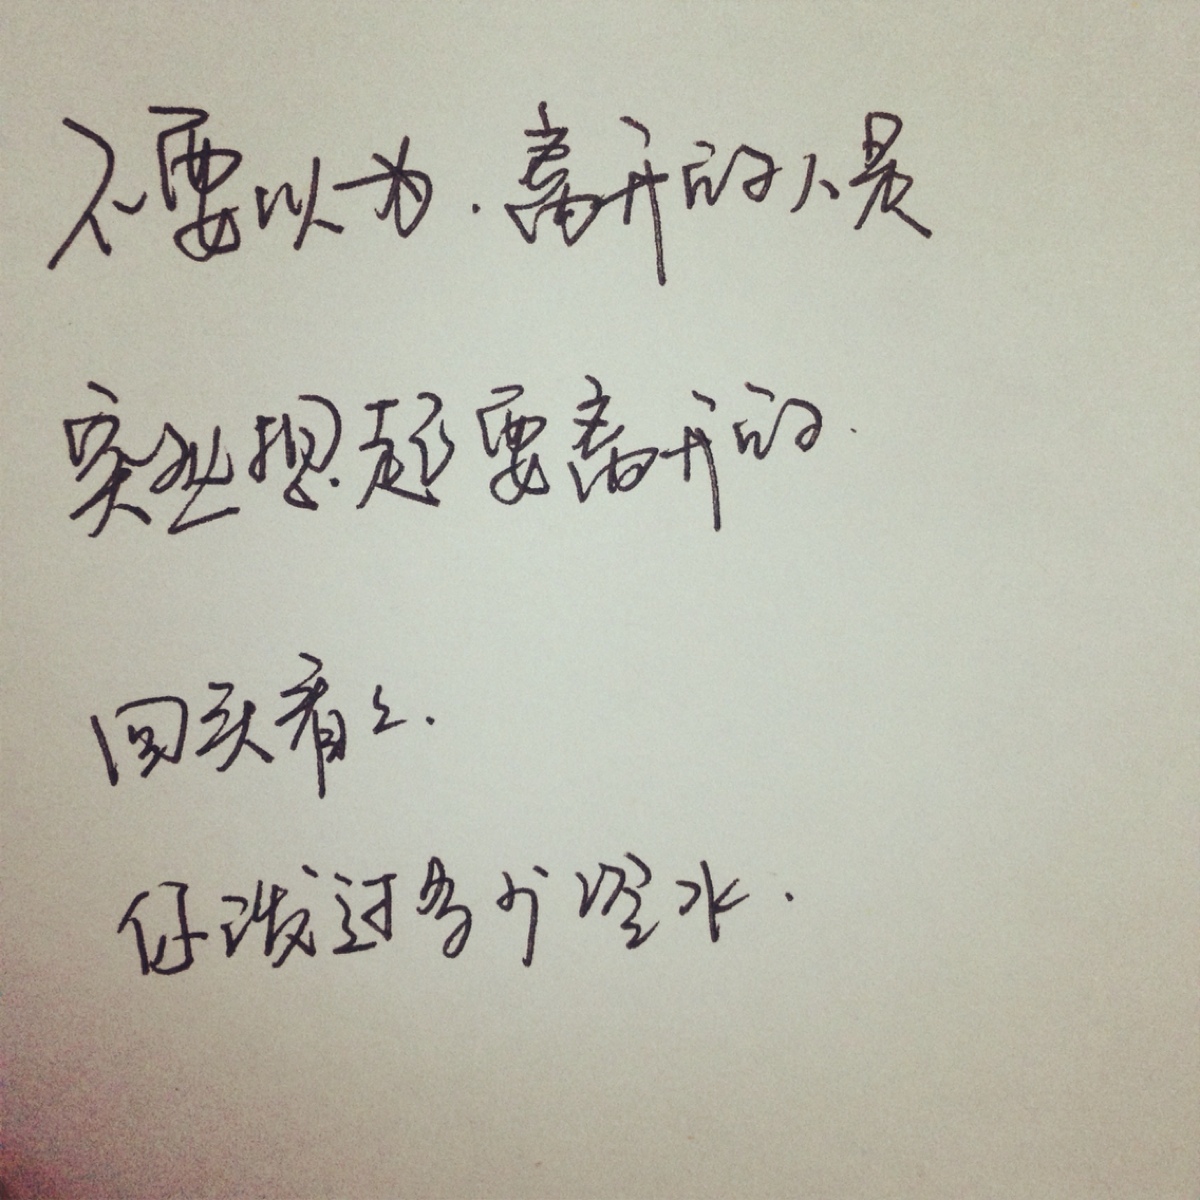 不要以为.离开的人是
突然想起要离开的.
回头看々.
你泼过多少冷水.